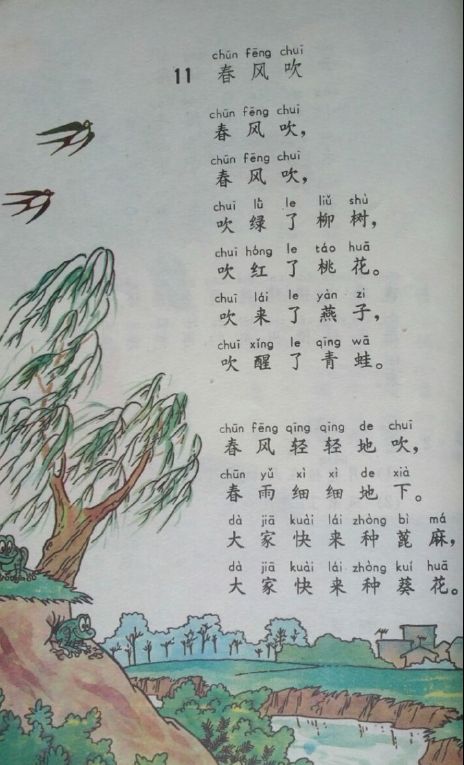 chūn fēng chuī
11 春风吹
chūn fēng chuī
春风吹，
chūn fēng chuī
春风吹，
chuī lǜ le liǔ shù
吹绿了柳树，
chuī hóng le táo huā
吹红了桃花。
chuī lái le yàn zi
吹来了燕子，
chuī xǐng le qīng wā
吹醒了青蛙。
chūn fēng qīng qīng de chuī
春风轻轻地吹，
chūn yǔ xì xì de xià
春雨细细地下。
dà jiā kuài lái zhòng bì má
大家快来种蓖麻，
dà jiā kuài lái zhòng kuí huā
大家快来种葵花。